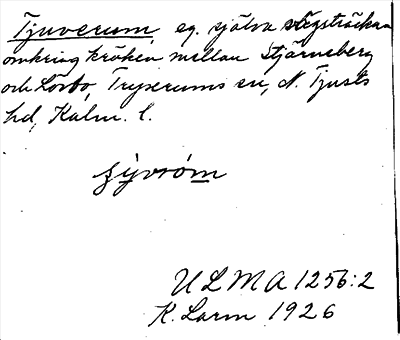 Tjuverum, eg. själva vägsträckan
omkring kröken mellan Stjärneberg
och Lövbo, Tryserums sn, N. Tjusts
hd, Kalm. l.
ULMA 1256:2
K. Larm 1926